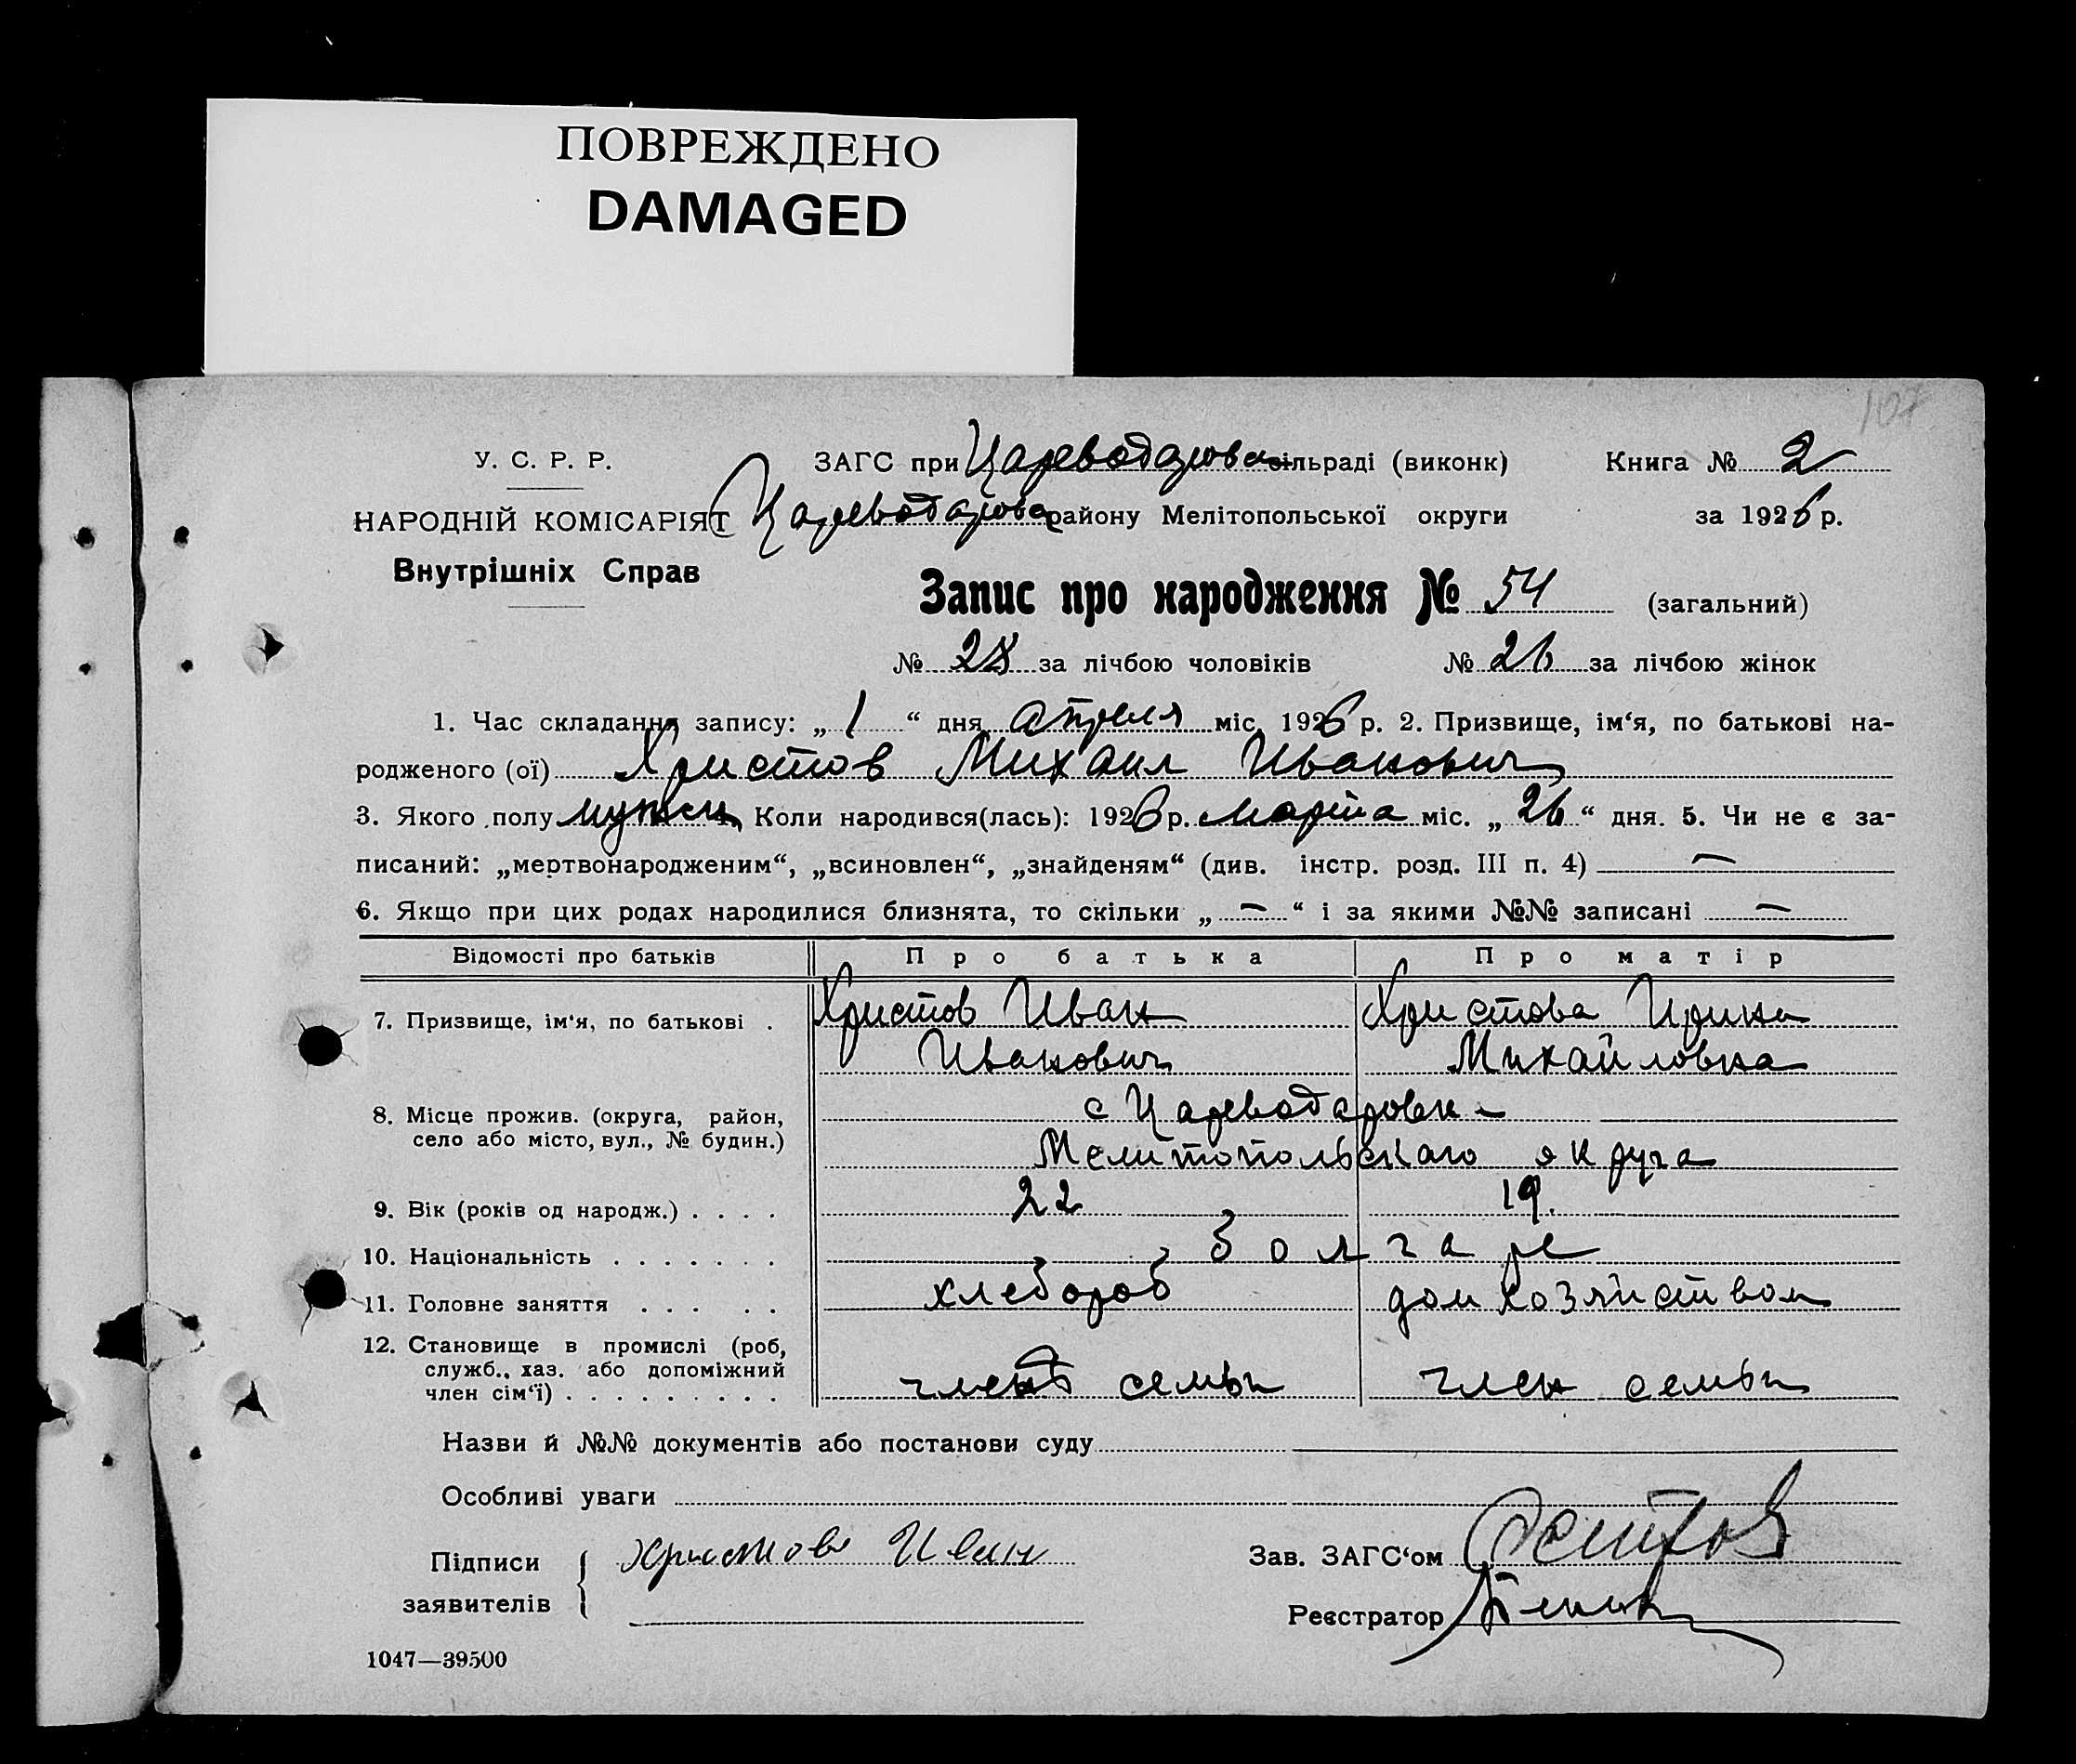 ПОВРЕЖДЕНО
DAMAGED
107
У. С. Р. Р.
ЗАГС при Царевода​ровс сільраді (виконк)
Книга № 2
НАРОДНІЙ КОМІСАРІЯТ
Цареводарова району Мелітопольської округи
за 1926 р.
Внутрішніх Справ
Запис про народження № 54 (загальний)
№ 28 за лічбою чоловіків № 26 за лічбою жінок
1. Час складання запису: „ 1 “ дня апреля міс. 1926 р. 2. Призвище, ім‘я, по батькові на-
родженого (ої) Христов Михаил Иванович
3. Якого полу мужск 4. Коли народився(лась): 1926 р. марта міс. „ 26 “ дня. 5. Чи не є за-
писаний: „мертвонародженим“, „всиновлен“, „знайденям“ (див. інстр. розд. III п. 4) —
6. Якщо при цих родах народилися близнята, то скільки „ — “ і за якими №№ записані —
Відомості про батьків Про батька Про матір
7. Призвище, ім‘я, по батькові . Христов Иван Христова Ирина
Иванович Михайловна
8. Місце прожив. (округа, район, с Цареводаровки
село або місто, вул., № будин.) Мелитопольскаго округа
9. Вік (років од народж.) . . . . 22 19.
10. Національність . . . . . . . болгаре
11. Головне заняття . . . . . хлебороб дом хозяйством
12. Становище в промислі (роб,
служб., хаз. або допоміжний
член сім‘ї) . . . . . . . . . член семьи член семьи
Назви й №№ документів або постанови суду
Особливі уваги
Підписи
заявителів
Христовъ Иван
Зав. ЗАГС‘ом
Реєстратор
1047—39500